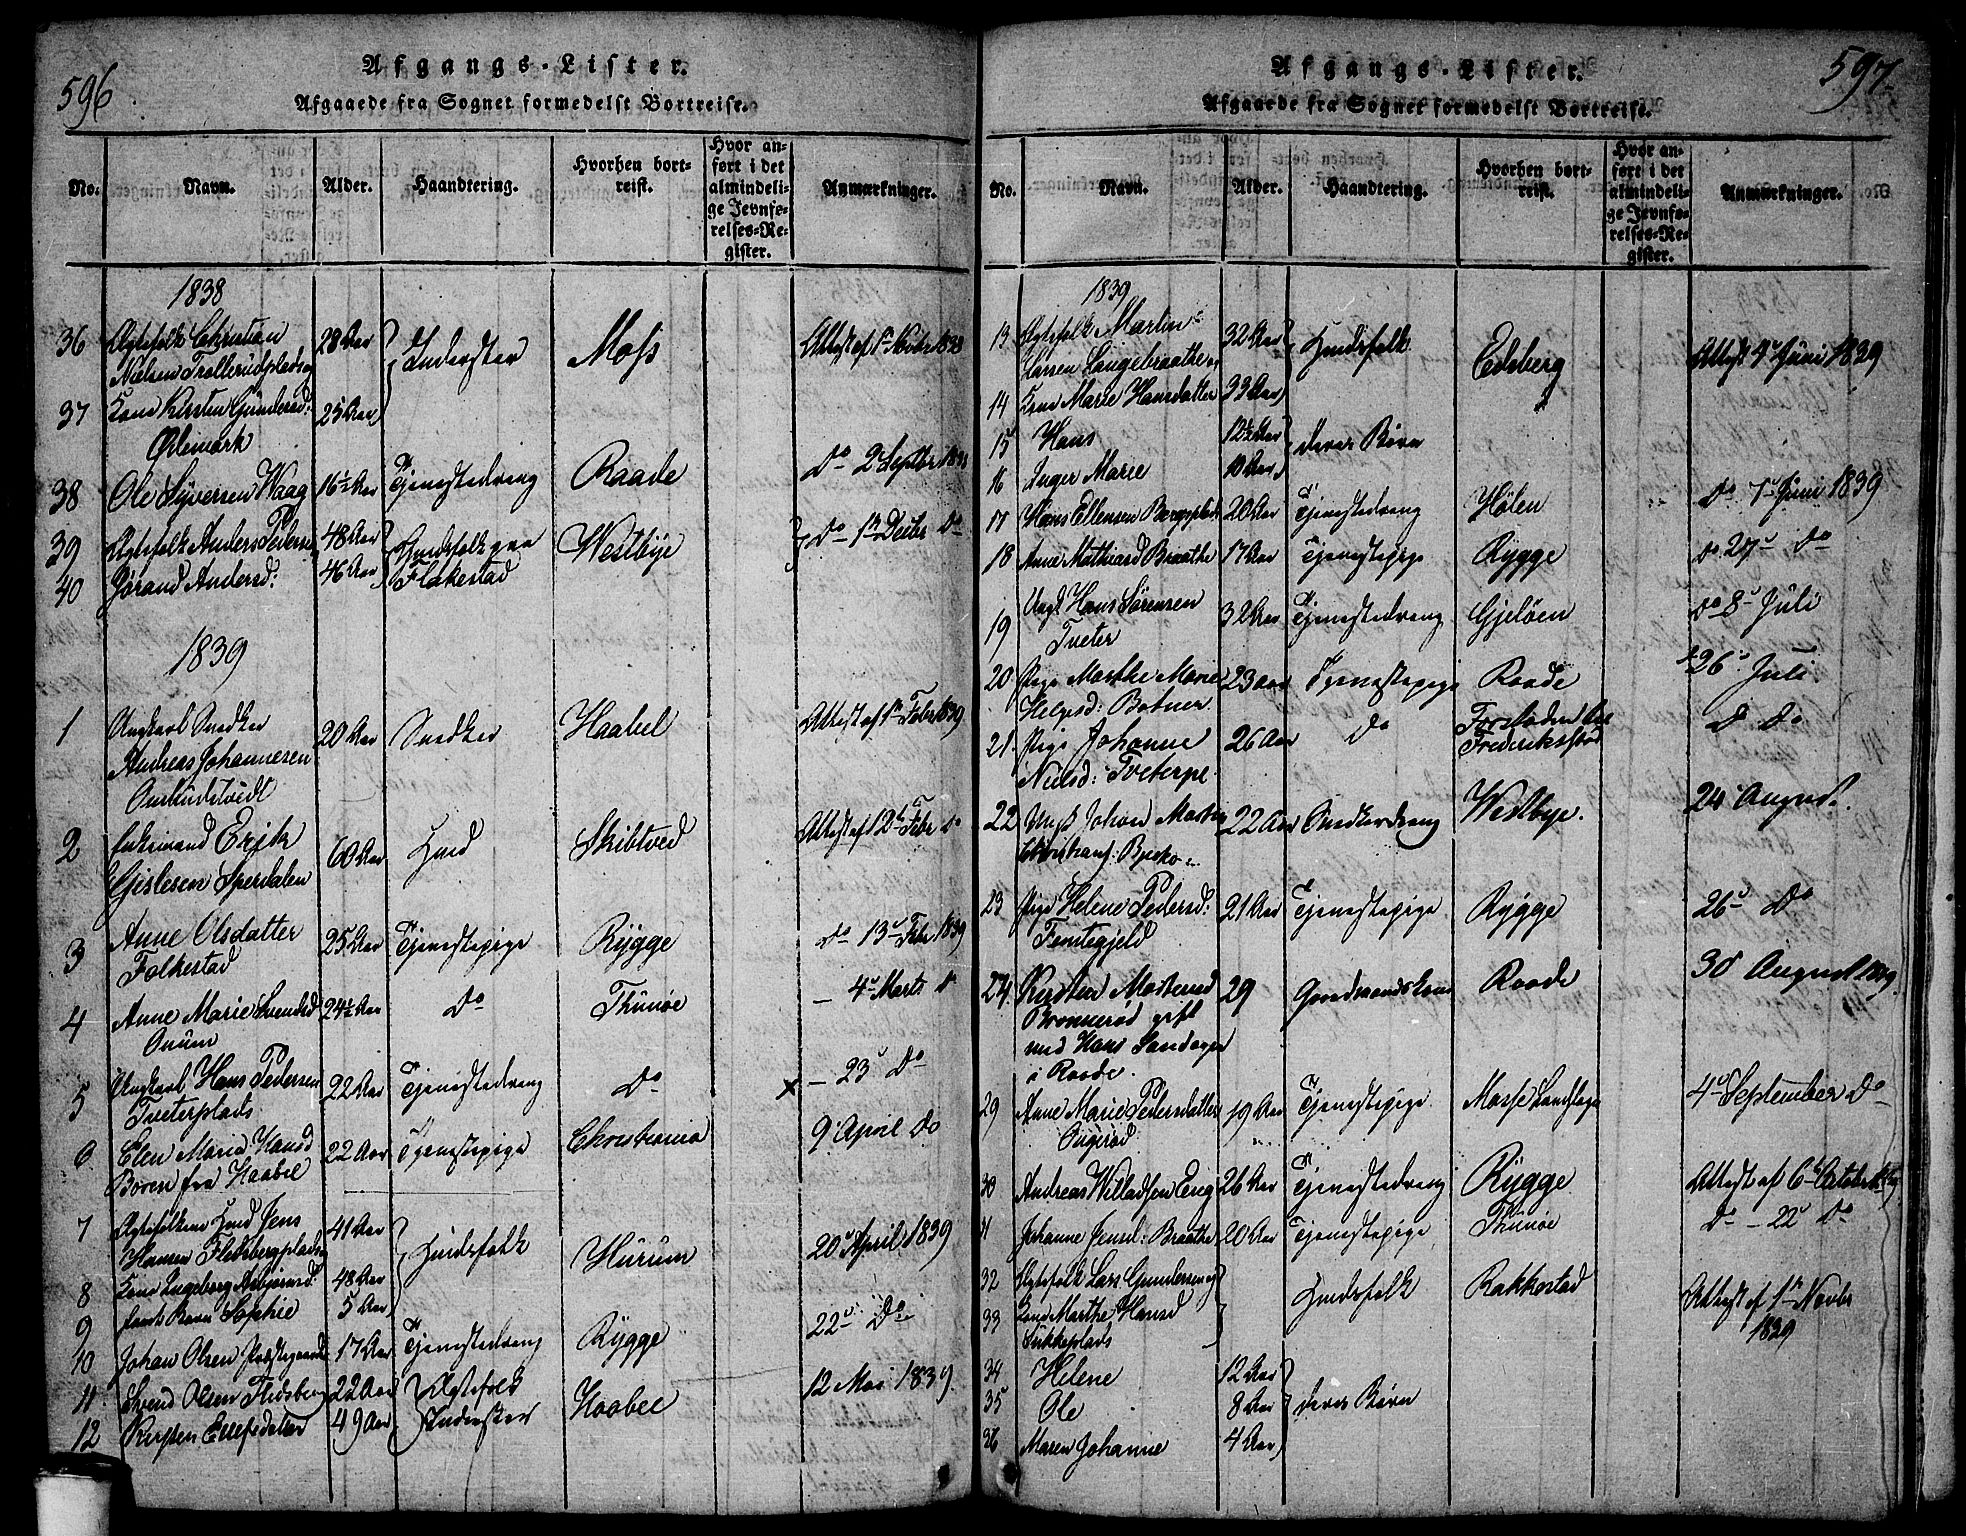 596
Afgangs-Lister.
Afgaaede fra Sognet formedelst Bortreise.
No. Navn. Alder. Haandtering. Hvorhen bortreist. Hvor anført i det almindelige Jevnførelses-Register. Anmærkninger.
1838
36 Ægtefolk Christian 28 Aar Inderster Moss Attest af 1 Novbr 1838
Nielsen Trollerudplads
37 Kone Kirsten Gundersd: 25 Aar
Ørlemark
38 Ole Syversen Waag 16½ Aar Tjenestedreng Raade Do 2 Septbr 1838
39 Ægtefolk Anders Peders 48 Aar Huusfolk paa Westbye Do 1 Decbr Do
40 Gørand Andersd: 46 Aar Flakestad
1839
1 Ungkarl Snedker 20 Aar Snedker Haabel Attest af 1 Febr 1839
Andreas Johannesen
2 Enkemand Erik 60 Aar Skibtved Attest af 12 Febr Do
Gislesen Sperdalen
3 Anne Olsdatter 25 Aar Tjenestepige Rygge Do 13 Febr 1839
Falkestad
4 Anne Marie Svendsd 24½ Aar Do Thunøe — 4 Marts Do
5 Ungkarl Hans Pedersen 22 Aar Tjenestedreng Do x — 23 Do
Tveterplads
6 Elen Maria Hansd 22 Aar Tjenestepige Christiania 9 April Do
Boren fra Haabel
7 Ægtefolkene Jens 41 Aar Huusfolk Hurum 20 April 1839
Hansen
8 Kone Ingeborg 48 Aar
9 samt Barn Sophie 5 Aar
10 Johan Olsen 17 Aar Tjenestedreng Rygge 22 Do
11 Svend Olsen 22 Aar Ægtefolk Haabel 12 Mai 1839
12 Kirsten 49 Aar Inderster
597
Afgangs-Lister.
Afgaaede fra Sognet formedelst Bortreise.
No. Navn. Alder. Haandtering. Hvorhen bortreist. Hvor anført i det almindelige Jevnførelses-Register. Anmærkninger.
1839
13 Ægtefolk Martin 32 Aar Huusfolk Edsberg Attest 4 Juni 1839
Larsen Langebraathe
14 Kone Marie Hansdatter 33 Aar
15 Hans 12½ Aar deres Børn
16 Inger Marie 10 Aar
17 Hans Ellensen Bergplads 20 Aar Tjenestedreng Hølen Do 7 Juni 1839
18 Anne Braathe 17 Aar Tjenestepige Rygge Do 27 Do
19 Ungk Hans Sørensen 32 Aar Tjenestedreng Gjeløen Do 8 Juli
Tveter
20 Pige Marthe Marie 23 Aar Tjenestepige Raade 26 Juli
Helgesd: Botner
21 Pige Johanne 26 Aar Do Forstaden Frederiksstad D Do
Nielsd: Tveterpl.
22 Ungk Johan Martin 22 Aar Westbye. 24 August.
23 Pige Helene Pedersd: 21 Aar Tjenestepige Rygge 26 Do
24 Kirsten 29 Gaardmandskone Raade 30 August 1839.
Bronnerød gift
med Hans Sandager
i Raade.
29 Anne Marie Pedersdatter 19 Aar Tjenestepige Mosse Landsogn 4 September Do
30 Andreas Willadsen Eng 26 Aar Tjenestedreng Rygge Attest af 6 October
31 Johanne Jensd: Braathe 20 Aar Tjenestepige Thunøe Do — 22 Do
32 Ægtefolk Lars Gundersen Huusfolk Rakkestad Attest af 1 Novbr 1839
33 Kone Marthe Hansd
34 Helene 12 Aar deres Børn
35 Ole 8 Aar
36 Maren Johanne 4 Aar